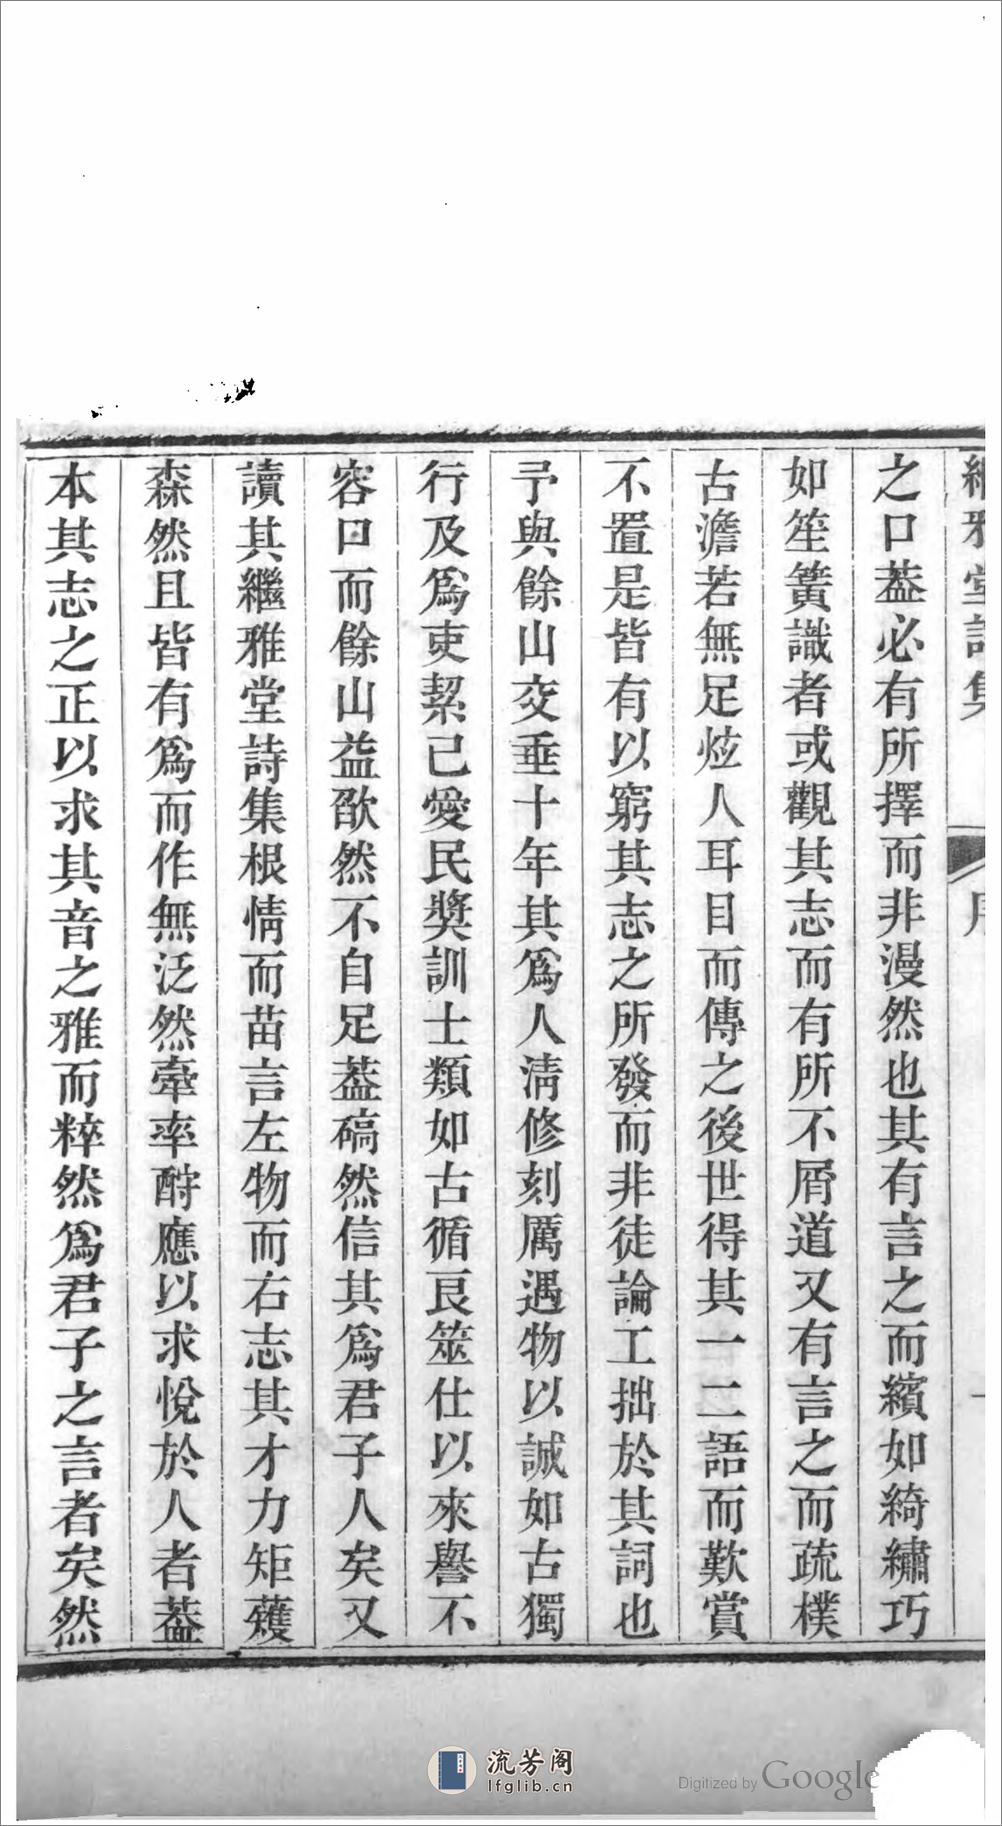 繼雅堂詩集 序 一
之口葢必有所擇而非漫然也其有言之而繽如綺繡巧
如笙簧識者或觀其志而有所不屑道又有言之而疏樸
古澹若無足炫人耳目而傳之後世得其一二語而歎賞
不置是皆有以窮其志之所發而非徒論工拙於其詞也
予與餘山交垂十年其爲人淸修刻厲遇物以誠如古獨
行及爲吏絜己愛民獎訓士類如古循良筮仕以來譽不
容口而餘山益欿然不自足葢碻然信其爲君子人矣又
讀其繼雅堂詩集根情而苗言左物而右志其才力矩矱
森然且皆有爲而作無泛然牽率酧應以求悅於人者葢
本其志之正以求其音之雅而粹然爲君子之言者矣然
流芳阁
lfglib.cn
Digitized by Google